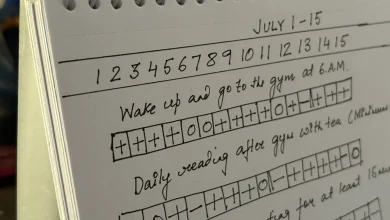 JULY 1-15
1 2 3 4 5 6 7 8 9 10 11 12 13 14 15
Wake up and go to the gym at 6 A.M.
+ + + + 0 0 + + + + 0 + - + + +
Daily reading after gym with tea (Minimum
for at least 15